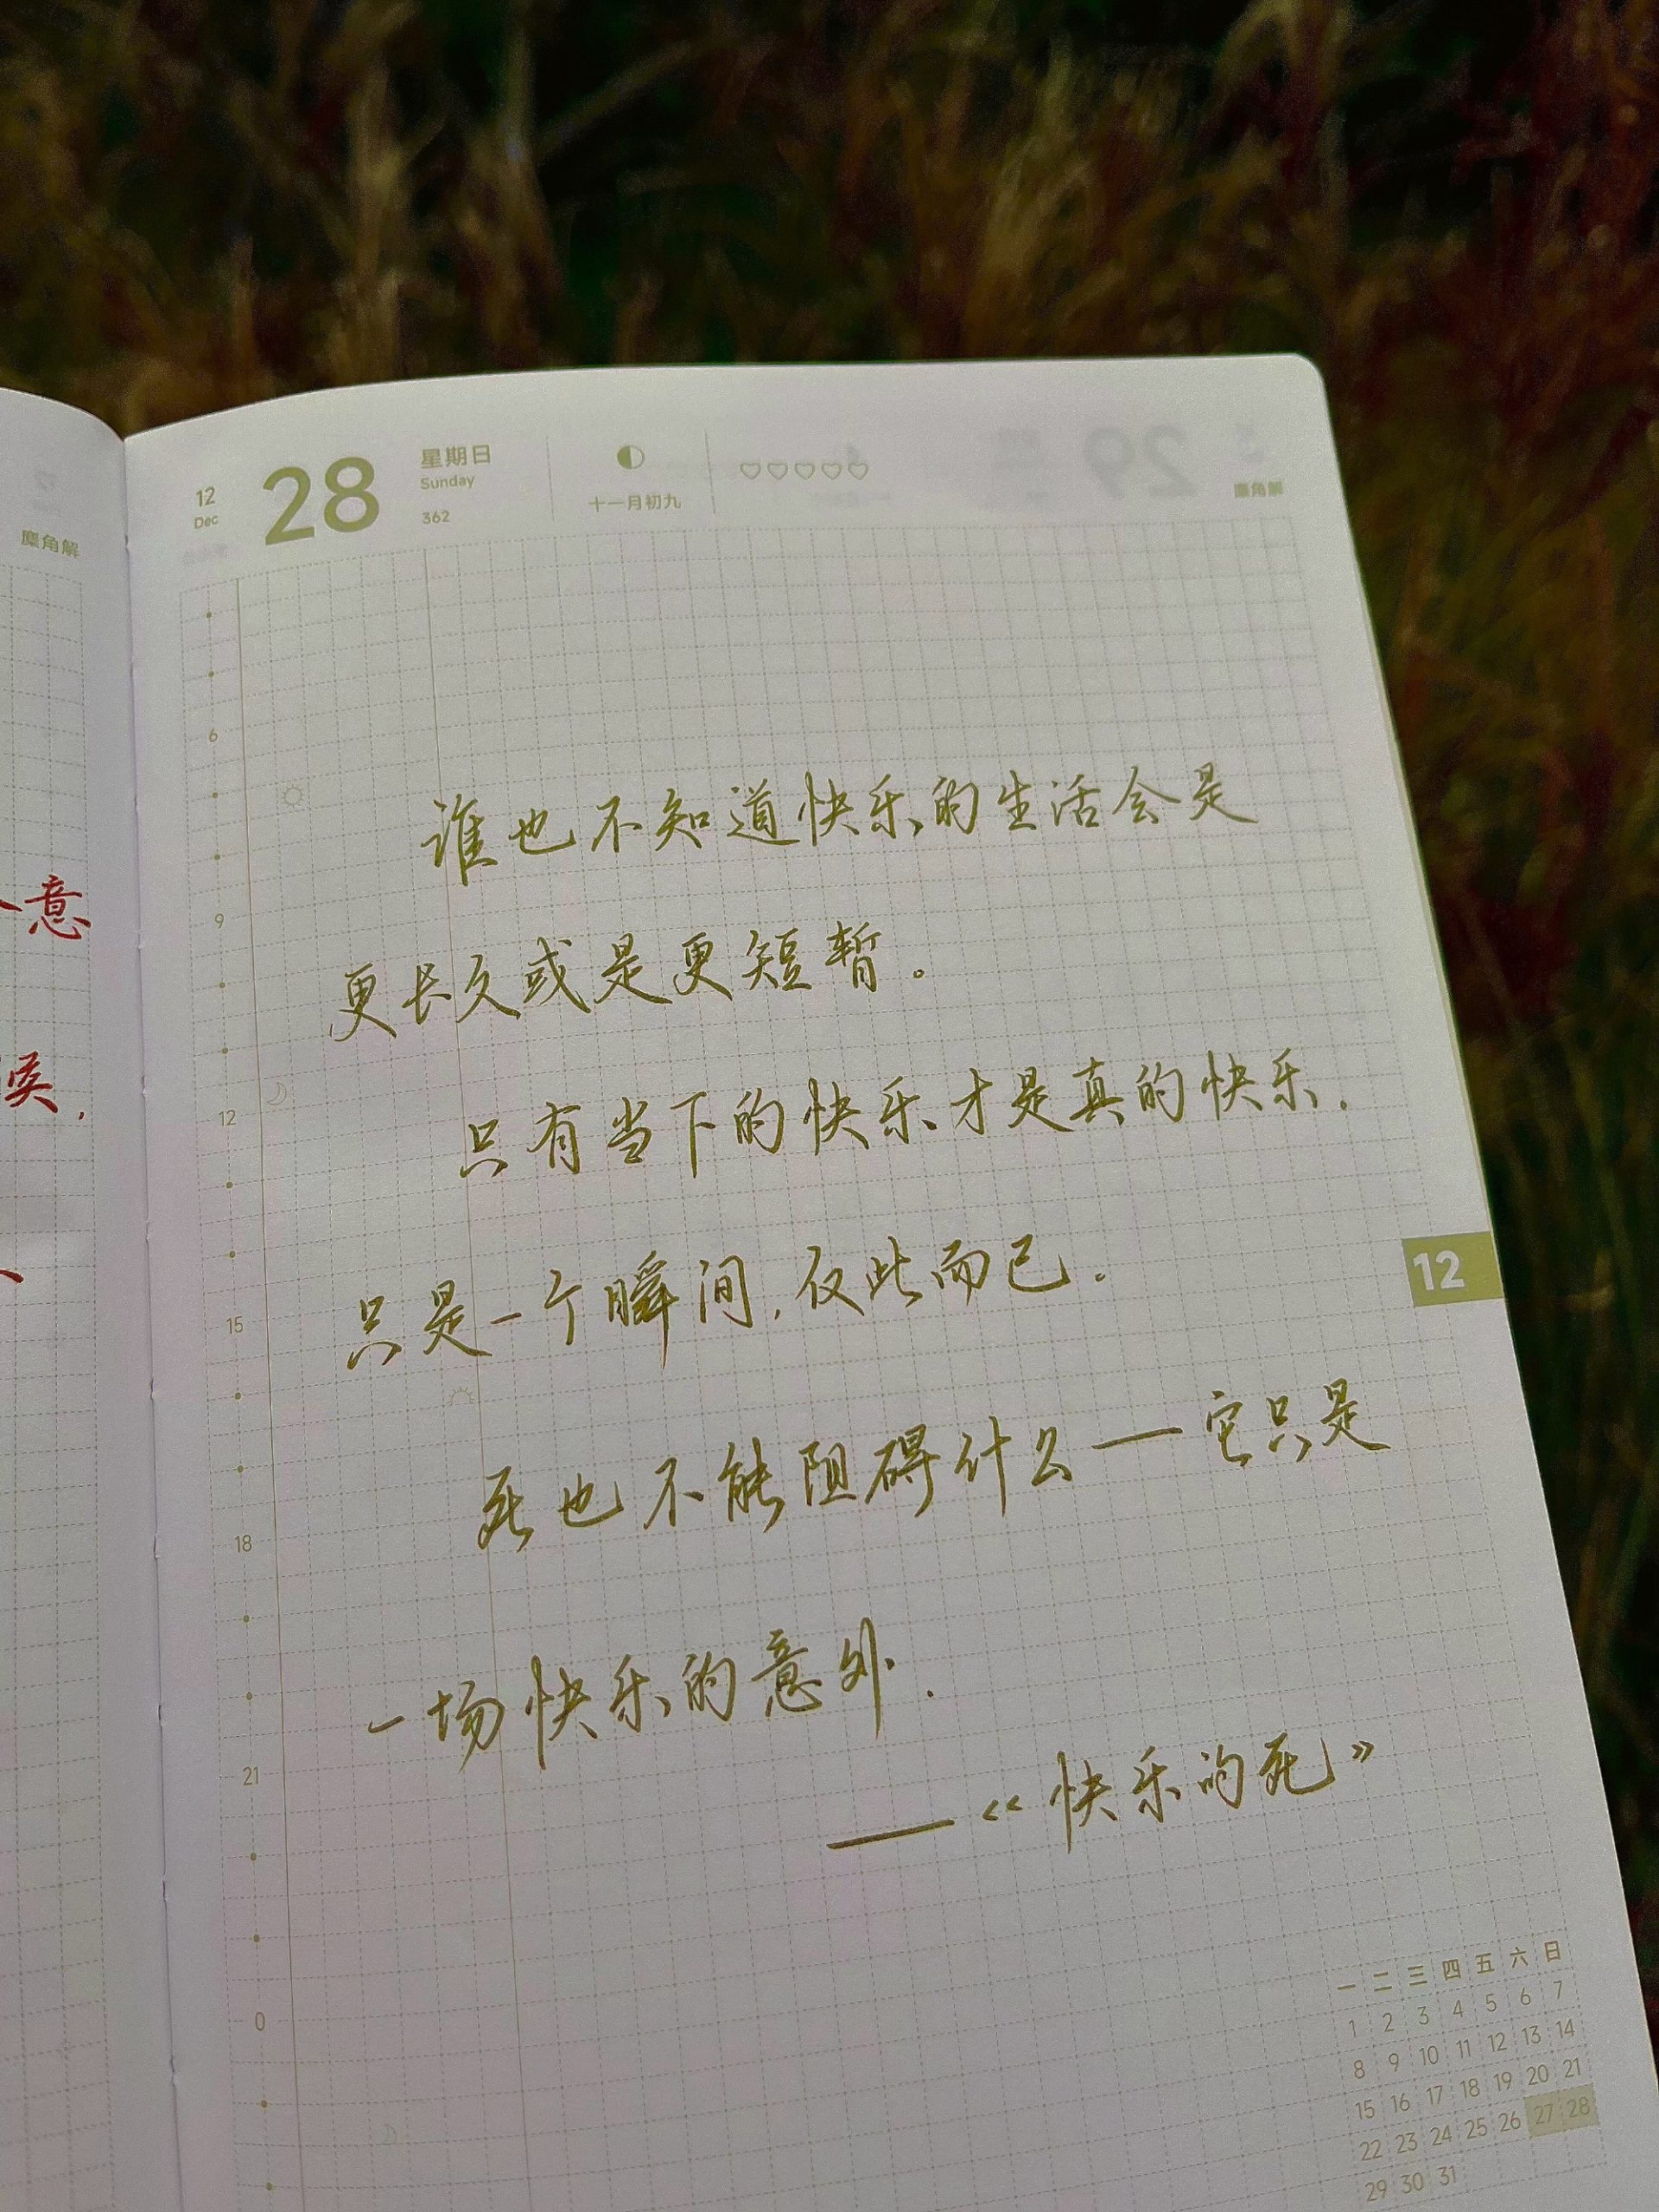 麋角解
一意
12
Dec
28
星期日
Sunday
362
十一月初九
29
麋角解
6
9
12
15
18
21
0
谁也不知道快乐的生活会是
更长久或是更短暂。
只有当下的快乐才是真的快乐.
只是一个瞬间,仅此而已.
死也不能阻碍什么——它只是
一场快乐的意外.
——《快乐的死》
12
一 二 三 四 五 六 日
1 2 3 4 5 6 7
8 9 10 11 12 13 14
15 16 17 18 19 20 21
22 23 24 25 26 27 28
29 30 31